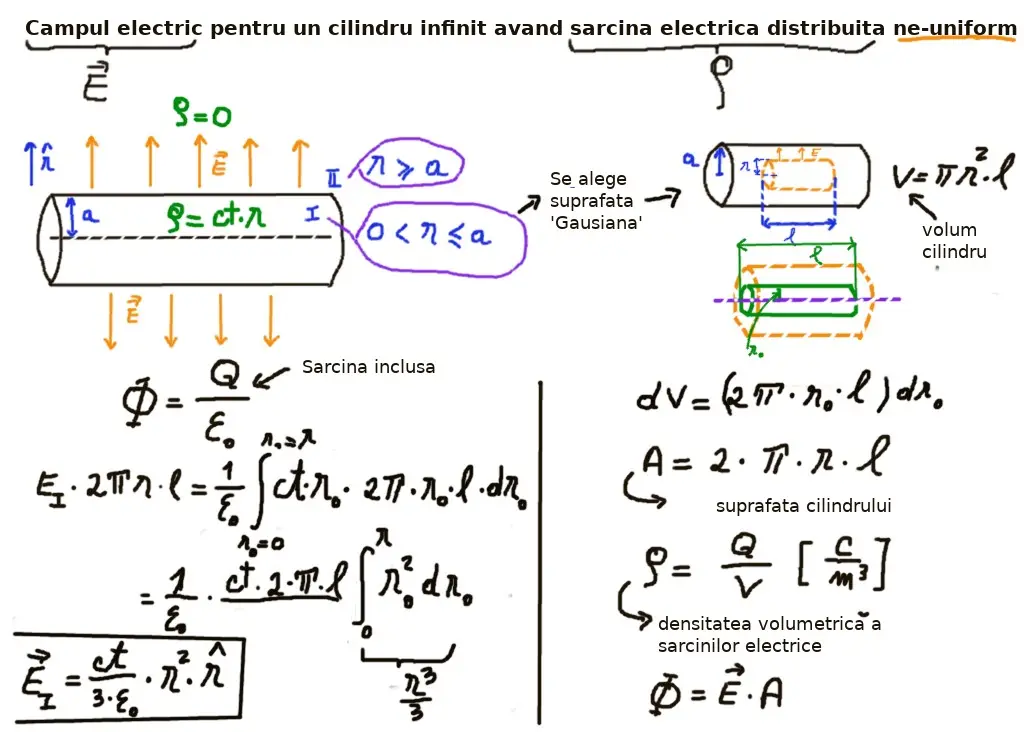 Campul electric pentru un cilindru infinit avand sarcina electrica distribuita ne-uniform
E⃗
ρ
ρ=0
r̂
E⃗
II
r ⩾ a
a
ρ= ct·r
I
0 < r ⩽ a
E⃗
Se alege
suprafata
'Gausiana'
a
r
E
l
V= π r² · l
volum
cilindru
l
r₀
Φ = Q/ε₀
Sarcina inclusa
E_I · 2πr · l = 1/ε₀ ∫_{r₀=0}^{r₀=r} ct·r₀ · 2π·r₀·l·dr₀
= 1/ε₀ · ct·2·π·l ∫_0^r r₀² dr₀
r³/3
E⃗_I = ct/(3·ε₀) · r² · r̂
dV = (2π·r₀·l) dr₀
A = 2 · π · r · l
suprafata cilindrului
ρ = Q/V [C/m³]
densitatea volumetrică a
sarcinilor electrice
Φ = E⃗ · A